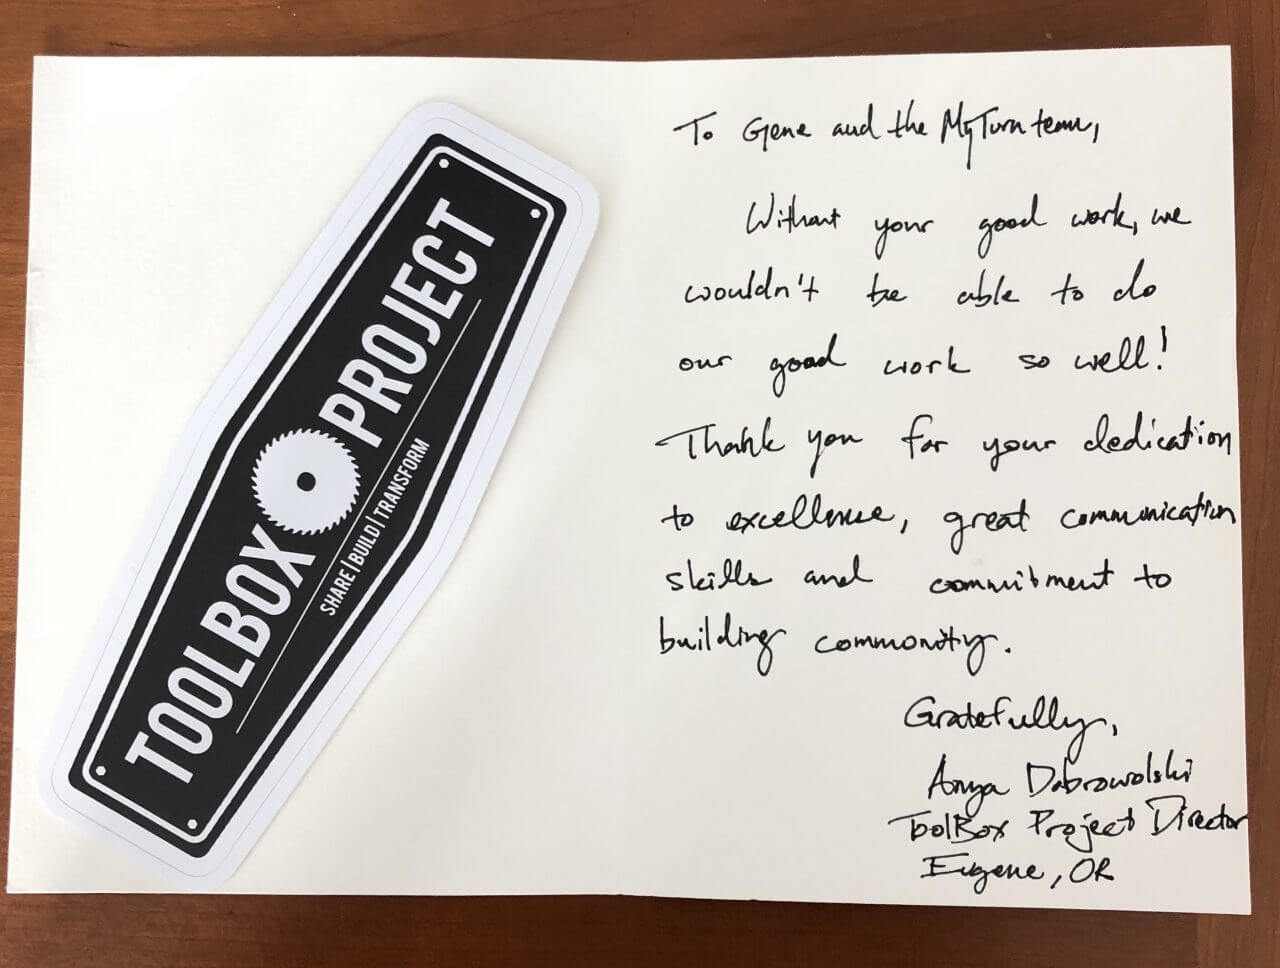 TOOLBOX PROJECT
SHARE|BUILD|TRANSFORM
To Gene and the MyTurn team,
Without your good work, we
wouldn't be able to do
our good work so well!
Thank you for your dedication
to excellence, great communication
skills and commitment to
building community.
Gratefully,
Anya Dobrowolski
ToolBox Project Director
Eugene, OR